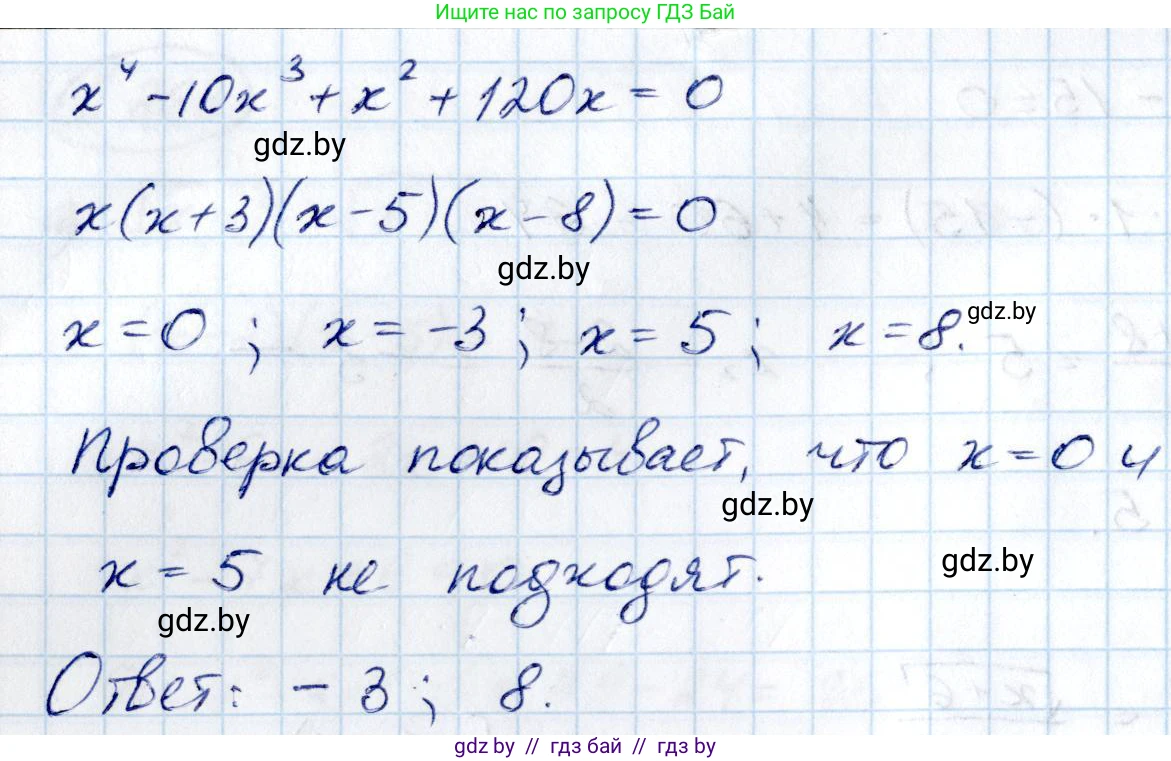 Ищите нас по запросу ГДЗ Бай
x⁴ - 10x³ + x² + 120x = 0
gdz.by
x(x+3)(x-5)(x-8) = 0
gdz.by
x = 0 ; x = -3 ; x = 5 ; x = 8.
gdz.by
Проверка показывает, что x = 0 и
gdz.by
x = 5 не подходят.
gdz.by
gdz.by
Ответ: - 3 ; 8.
gdz.by // гдз бай // гдз by